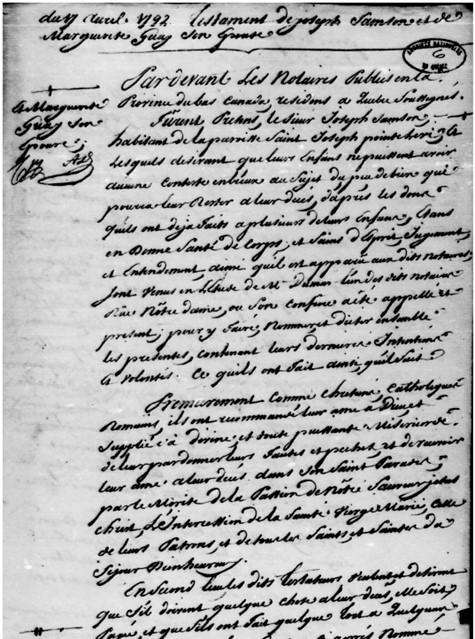 du 17 avril 1792. Testament de Joseph Samson et de
Marguerite Guay Son Epouse
ARCHIVES NATIONALES
DU QUEBEC
Pardevant Les Notaires Publics en la
Province du bas Canada residens a Quebec Soussignés
Furent Presens, le Sieur Joseph Samson
& Marguerite
Guay Son
Epouse;
habitant de la parroisse Saint Joseph pointe Levi &
Lesquels desirant que leurs Enfans ne puissent avoir
aucune conteste entre eux au Sujet du peu de bien qui
pourra leur Rester a leur decés, d'après les dons
qu'ils ont deja faits a plusieurs de leurs Enfans, Etans
en Bonne Santé de Corps, et Sains d'Esprit, Jugement,
et Entendement, ainsi qu'il est apparu aux dits Notaires
Sont Venus en L'Etude de Mr Dumas l'un des dits notaires
Rue Nôtre dame, ou Son confrere a été appellé et
present, pour y faire, Nommer et dicter ensemble
les presentes, contenant leurs dernieres Intentions
& Volontés. Ce qu'ils ont fait ainsi qu'il Suit
Premierement comme chretiens Catholiques
Romains, ils ont recommandé leur ame a Dieu, et
Supplié Sa divine et toute puissante Misericorde
de leur pardonner leurs fautes et pechés et de recevoir
leur ame a leur decés dans Son Saint Paradis,
par le Mérite de la Passion de Nôtre Sauveur Jesus
christ, L'Intercession de la Sainte Vierge Marie, celle
de leurs Patrons, et de tous les Saints et Saintes du
Séjour Bienheureux
En Second lieu les dits Testateurs Veulent et desirent
que S'ils doivent quelque chose a leur decés, elle Soit
Payé et que S'ils ont fait quelque tort a Quelqu'un
Nommé